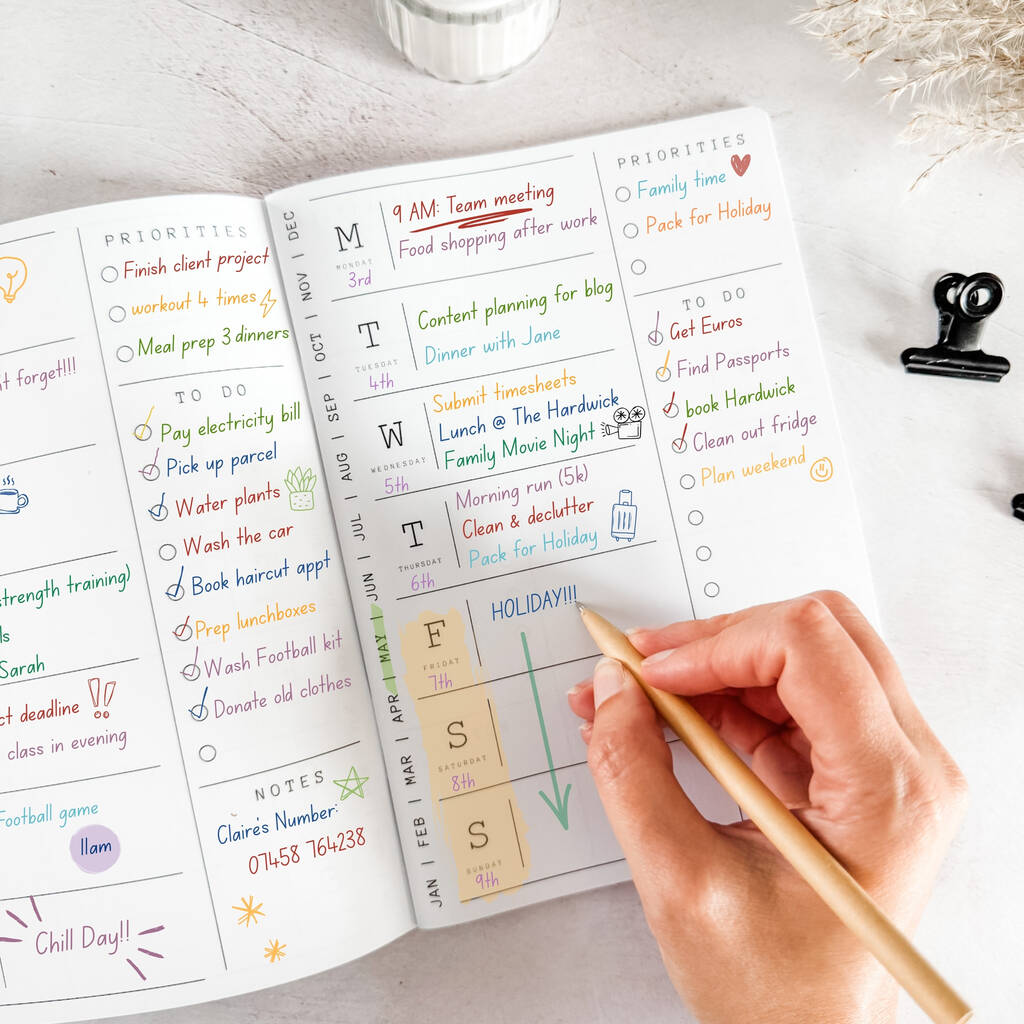 t forget!!!
strength training)
ls
Sarah
ct deadline !!
class in evening
Football game
11am
Chill Day!!
PRIORITIES
Finish client project
workout 4 times
Meal prep 3 dinners
TO DO
Pay electricity bill
Pick up parcel
Water plants
Wash the car
Book haircut appt
Prep lunchboxes
Wash Football kit
Donate old clothes
NOTES
Claire's Number:
07458 764238
JAN | FEB | MAR | APR | MAY | JUN | JUL | AUG | SEP | OCT | NOV | DEC
M
MONDAY
3rd
9 AM: Team meeting
Food shopping after work
T
TUESDAY
4th
Content planning for blog
Dinner with Jane
W
WEDNESDAY
5th
Submit timesheets
Lunch @ The Hardwick
Family Movie Night
T
THURSDAY
6th
Morning run (5k)
Clean & declutter
Pack for Holiday
F
FRIDAY
7th
HOLIDAY!!!
S
SATURDAY
8th
S
SUNDAY
9th
PRIORITIES
Family time
Pack for Holiday
TO DO
Get Euros
Find Passports
book Hardwick
Clean out fridge
Plan weekend